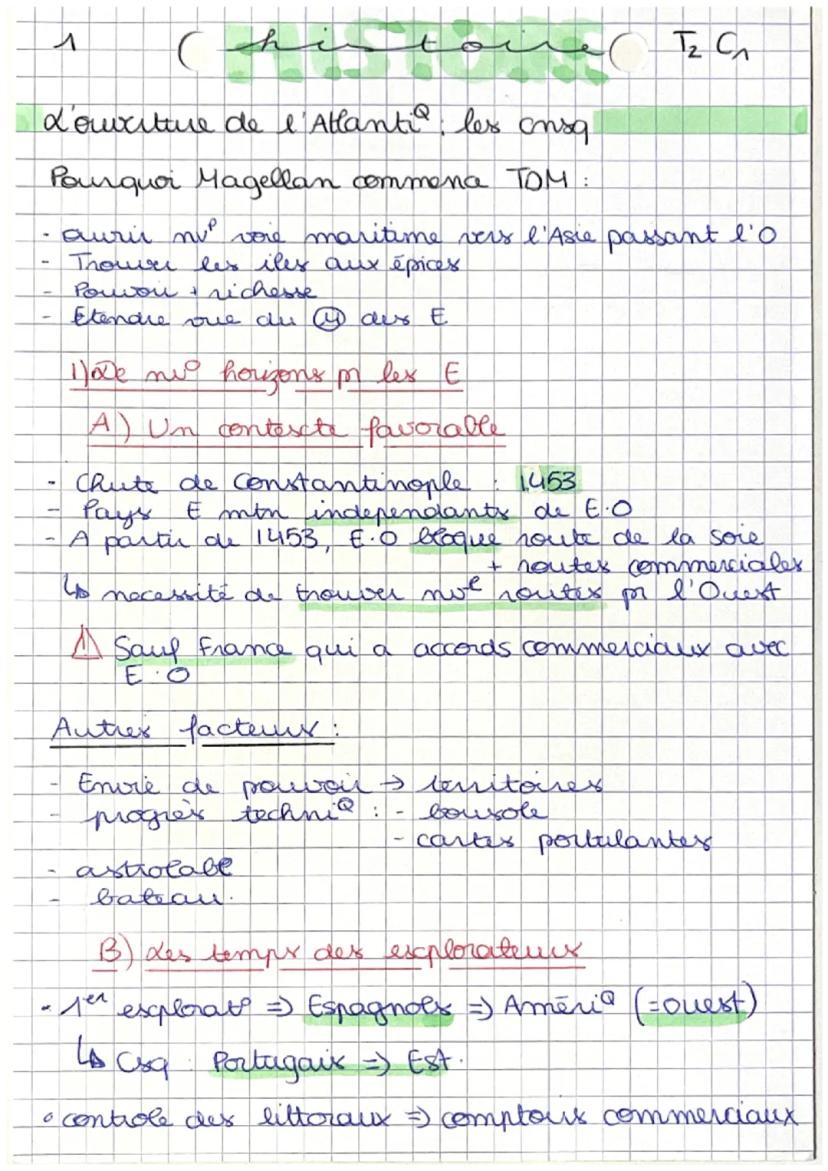 1 histoire T2 C1
HISTOIRE
L'ouverture de l'AtlantiQ : les cnsq
Pourquoi Magellan commença TDM :
- ouvrir nvl voie maritime vers l'Asie passant l'O
- Trouver les îles aux épices
- Pouvoir + richesse
- Etendre vue du M des E
1) De nvo horizons pr les E
A) Un contexte favorable
- Chute de Constantinople : 1453
- Pays E mtn independants de E.O
- A partir de 1453, E.O bloque route de la soie
+ routes commerciales
↳ necessité de trouver nvl routes pr l'Ouest
⚠ Sauf France qui a accords commerciaux avec
E.O
Autres facteurs :
- Envie de pouvoir → territoires
- progrès techniQ : - bousole
- cartes portulantes
- astrolabe
- bateau.
B) Les temps des explorateurs
- 1er explorato ⇒ Espagnols ⇒ AmériQ (=ouest)
↳ Csq : Portugais ⇒ Est.
• controle des littoraux ⇒ comptoirs commerciaux